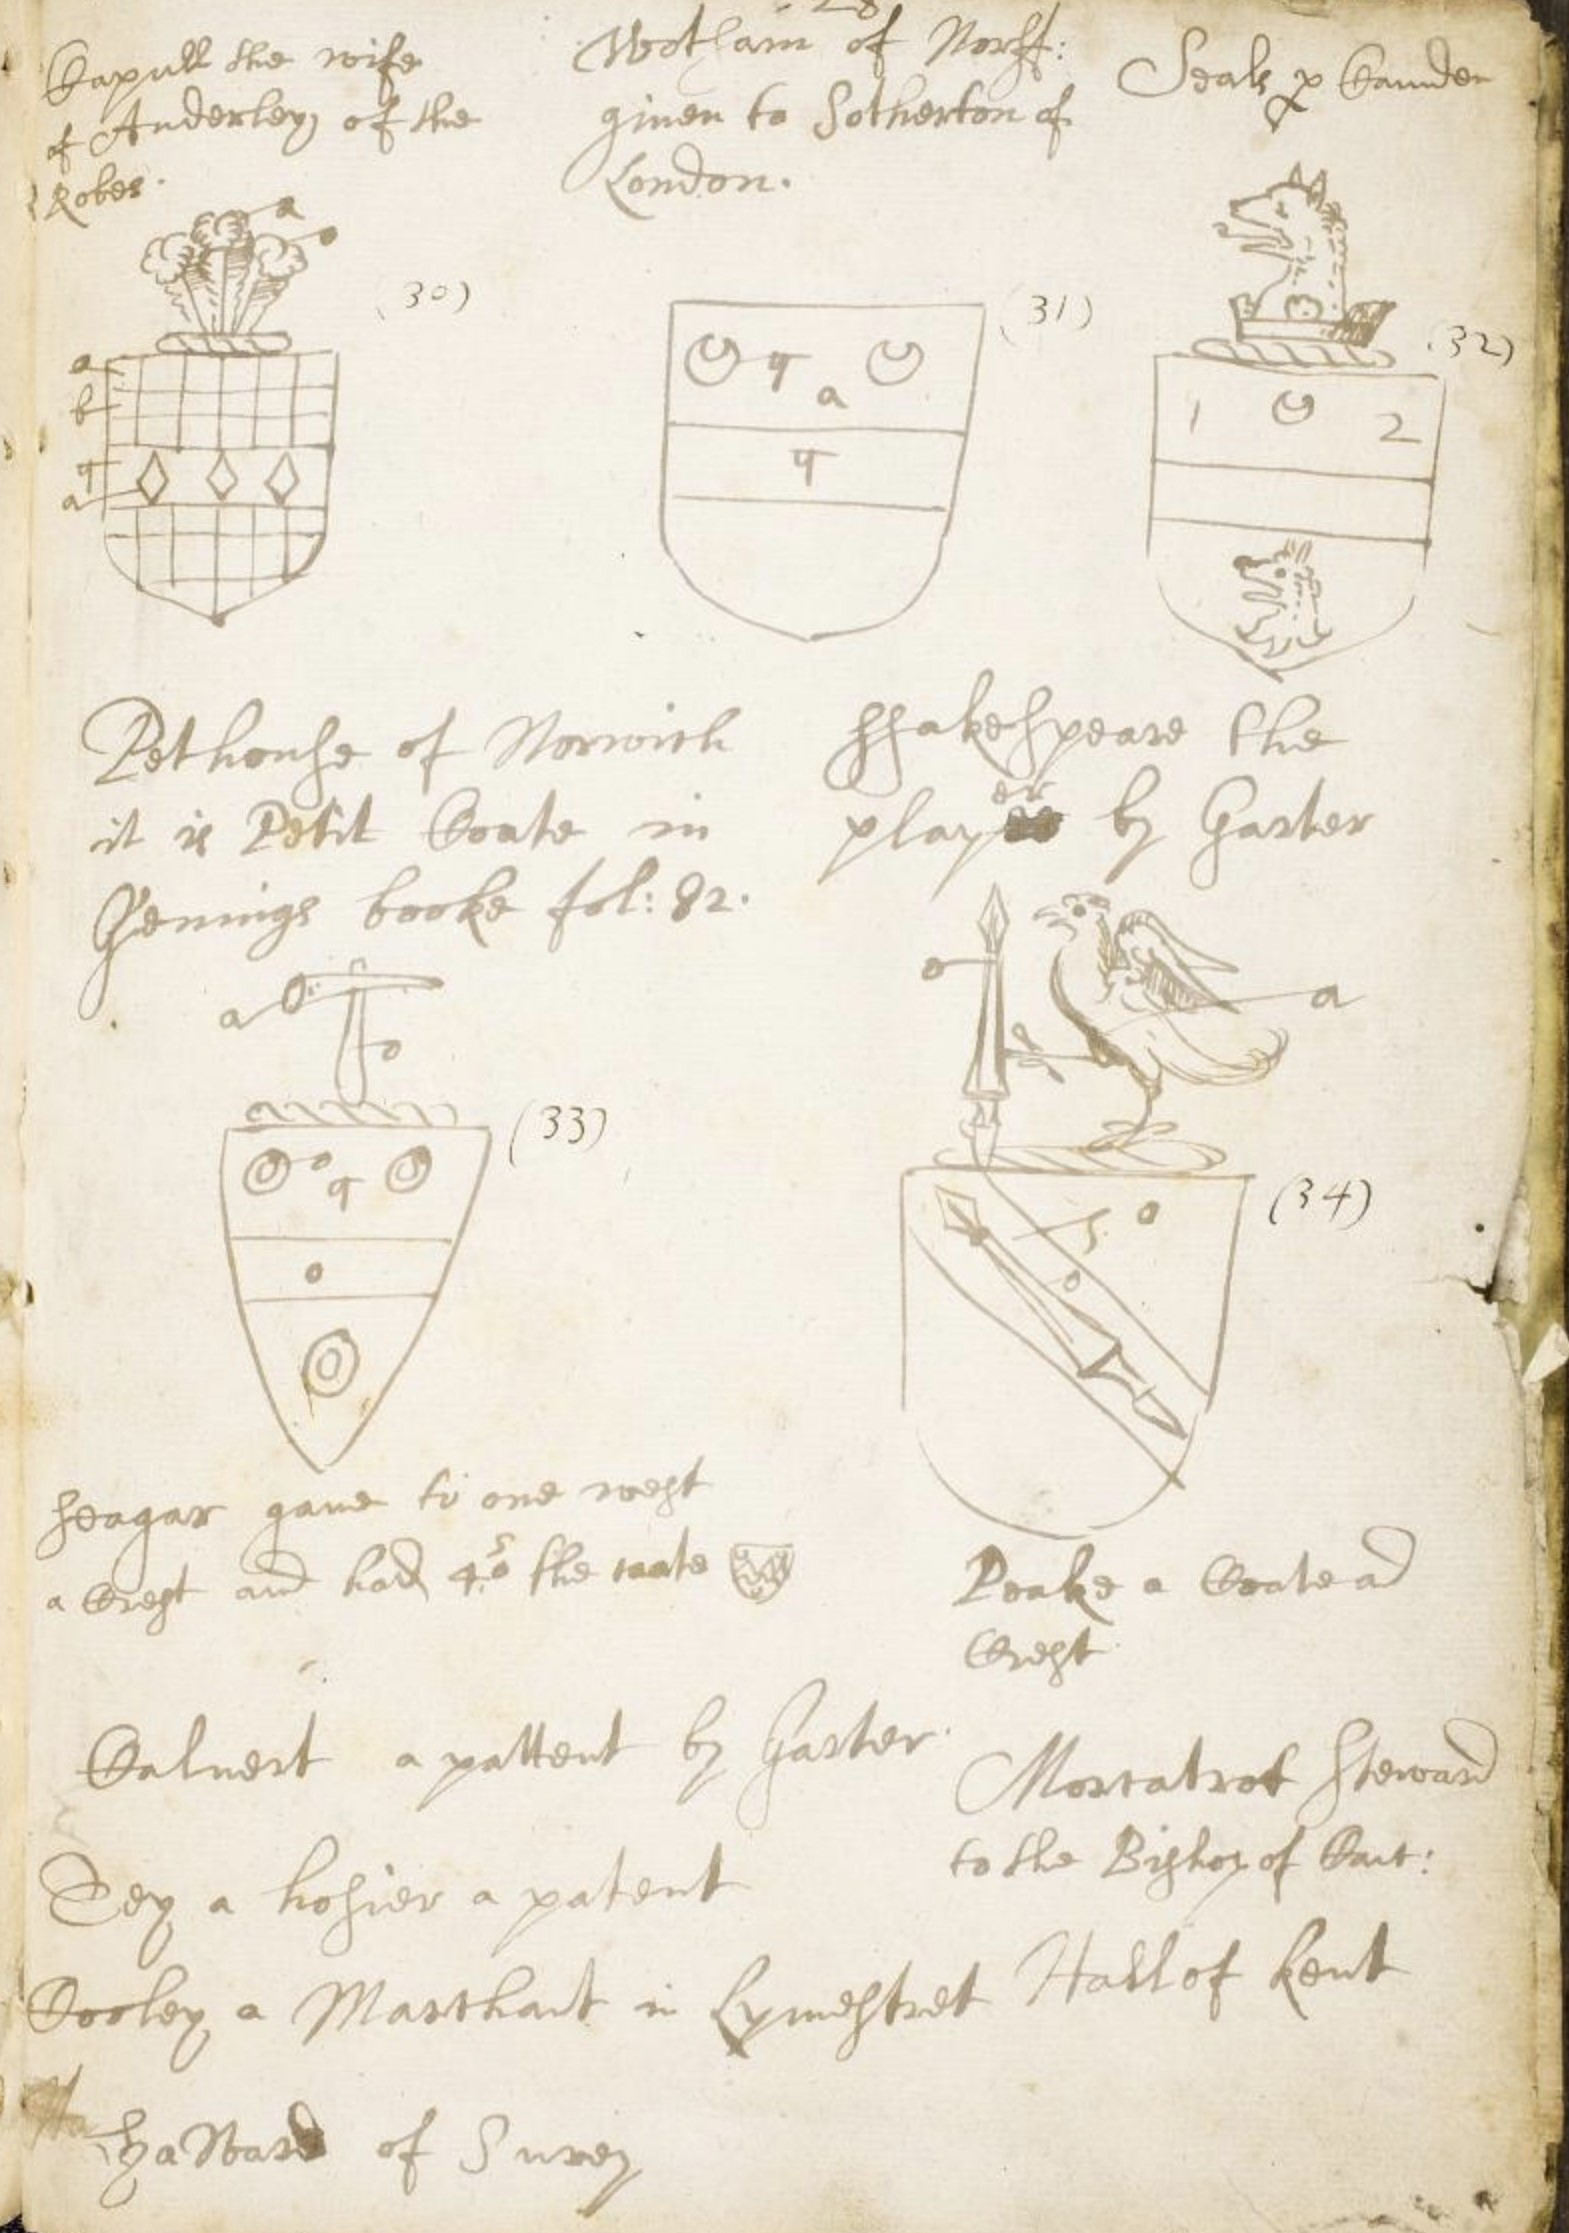 28
Capull the wife
of Anderley of the
Robes.
a
o
(30)
a
b
q
a
Wotham of Norff:
giuen to Sotherton of
London.
(31)
q
a
q
Seals p Camden
(32)
1 2
Pethouse of Norwich
it is Petit Coate in
Gennings booke fol: 82.
a
o
(33)
o
q
o
Shakespeare the
player by Garter
o
a
(34)
S
o
o
Seagar gaue to one west
a Crest and had 4 the coate
Peake a Coate and
Crest
Caluert a pattent by Garter.
Morcatrot Steward
to the Bishop of Cant:
Dey a hosier a patent
Cooley a Marchant in Lymestret
Hall of Kent
Haward of Surey